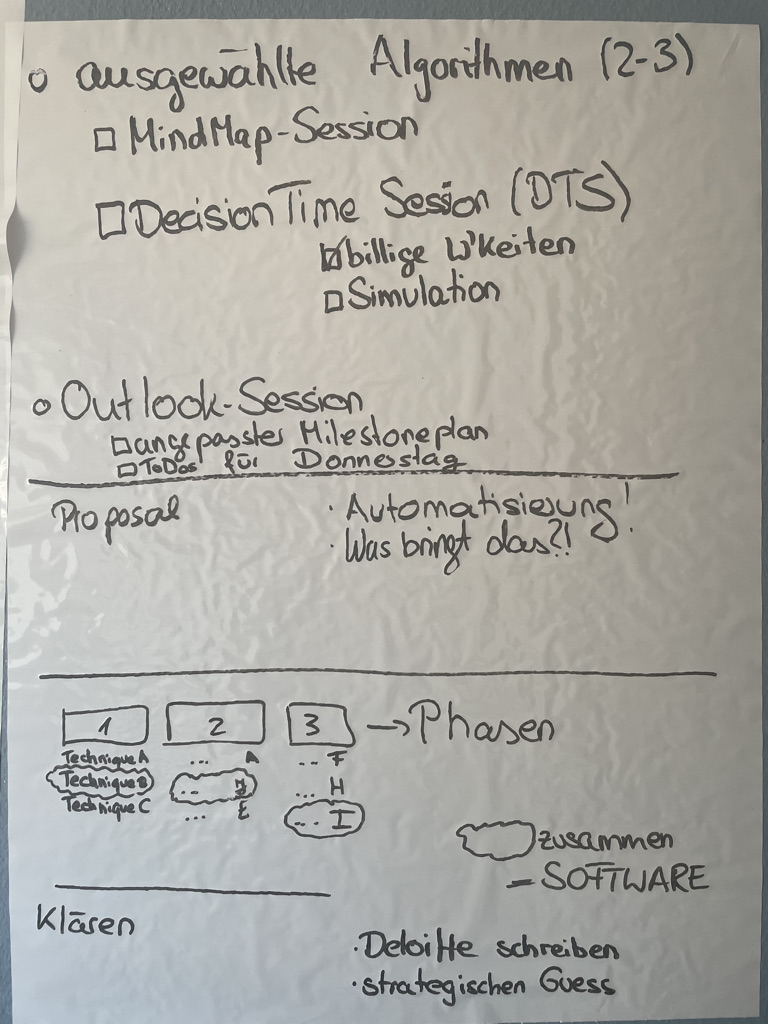 o ausgewählte Algorithmen (2-3)
☐ MindMap-Session
☐ DecisionTime Session (DTS)
☒ billige W'Keiten
☐ Simulation
o Outlook-Session
☐ angepasster Milestoneplan
☐ ToDos für Donnerstag
Proposal
· Automatisierung!
· Was bringt das?!
1 2 3 → Phasen
Technique A ... A ... F
Technique B ... ... H
Technique C ... E ... I
zusammen
= SOFTWARE
Klären
· Deloitte schreiben
· strategischen Guess